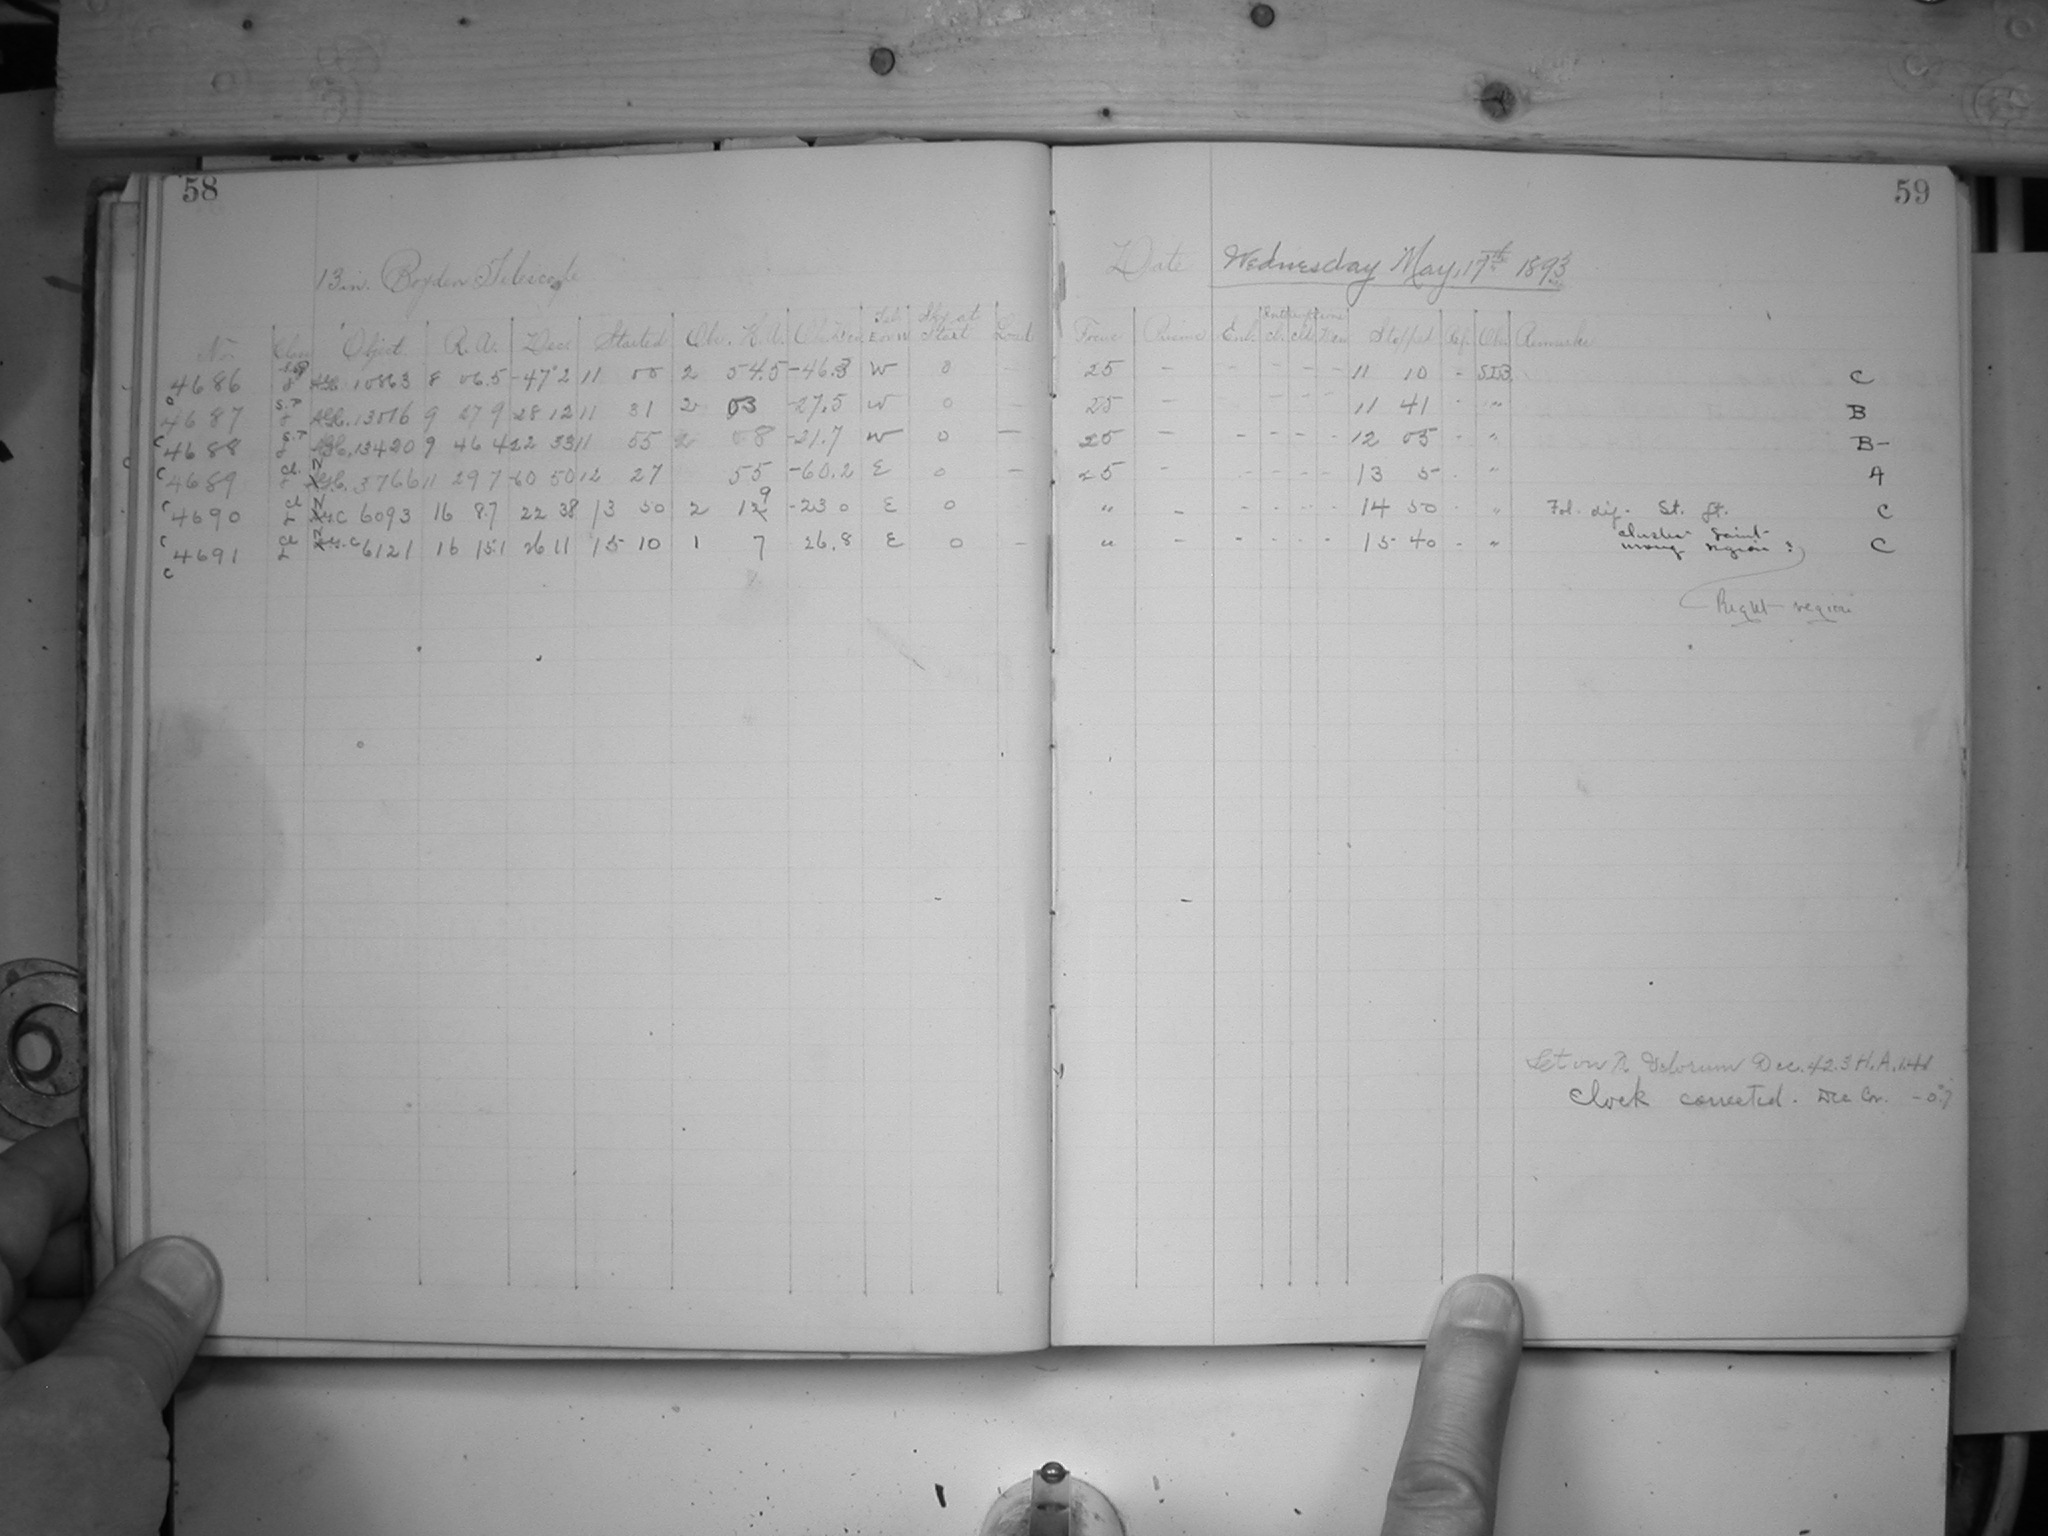 58
59
13 in. Boyden Telescope
Date Wednesday May, 17th 1893
No. Class Object R.A. Dec. Started Obs. H.A. Sky at Start Focus Prism Stopped Obs. Remarks
4686 10863 8 06.5 -47 2 11 00 2 54.5 -46.3 W 0 - 25 - - - - 11 10 - S.I.B. C
4687 9 27 9 28 12 11 31 2 03 -27.5 W 0 - 25 11 41 " B
4688 13420 9 46 4 22 33 11 55 2 08 -21.7 W 0 - 25 - - - - - 12 05 - " B-
4689 3766 11 29 7 -60 50 12 27 55 -60.2 E 0 - 25 - - - - - 13 5 - " A
4690 6093 16 8.7 22 38 13 50 2 12 9 -23 0 E 0 " - - - - - 14 50 - " Fol. St. ft. C
4691 6121 16 15.1 26 11 15 10 1 7 26.8 E 0 - " - - - - - 15 40 - " cluster faint
wrong region ? C
Right region
Set on Velorum Dec. 42.3 H.A.
Clock corrected. Dec Cor. -0.7